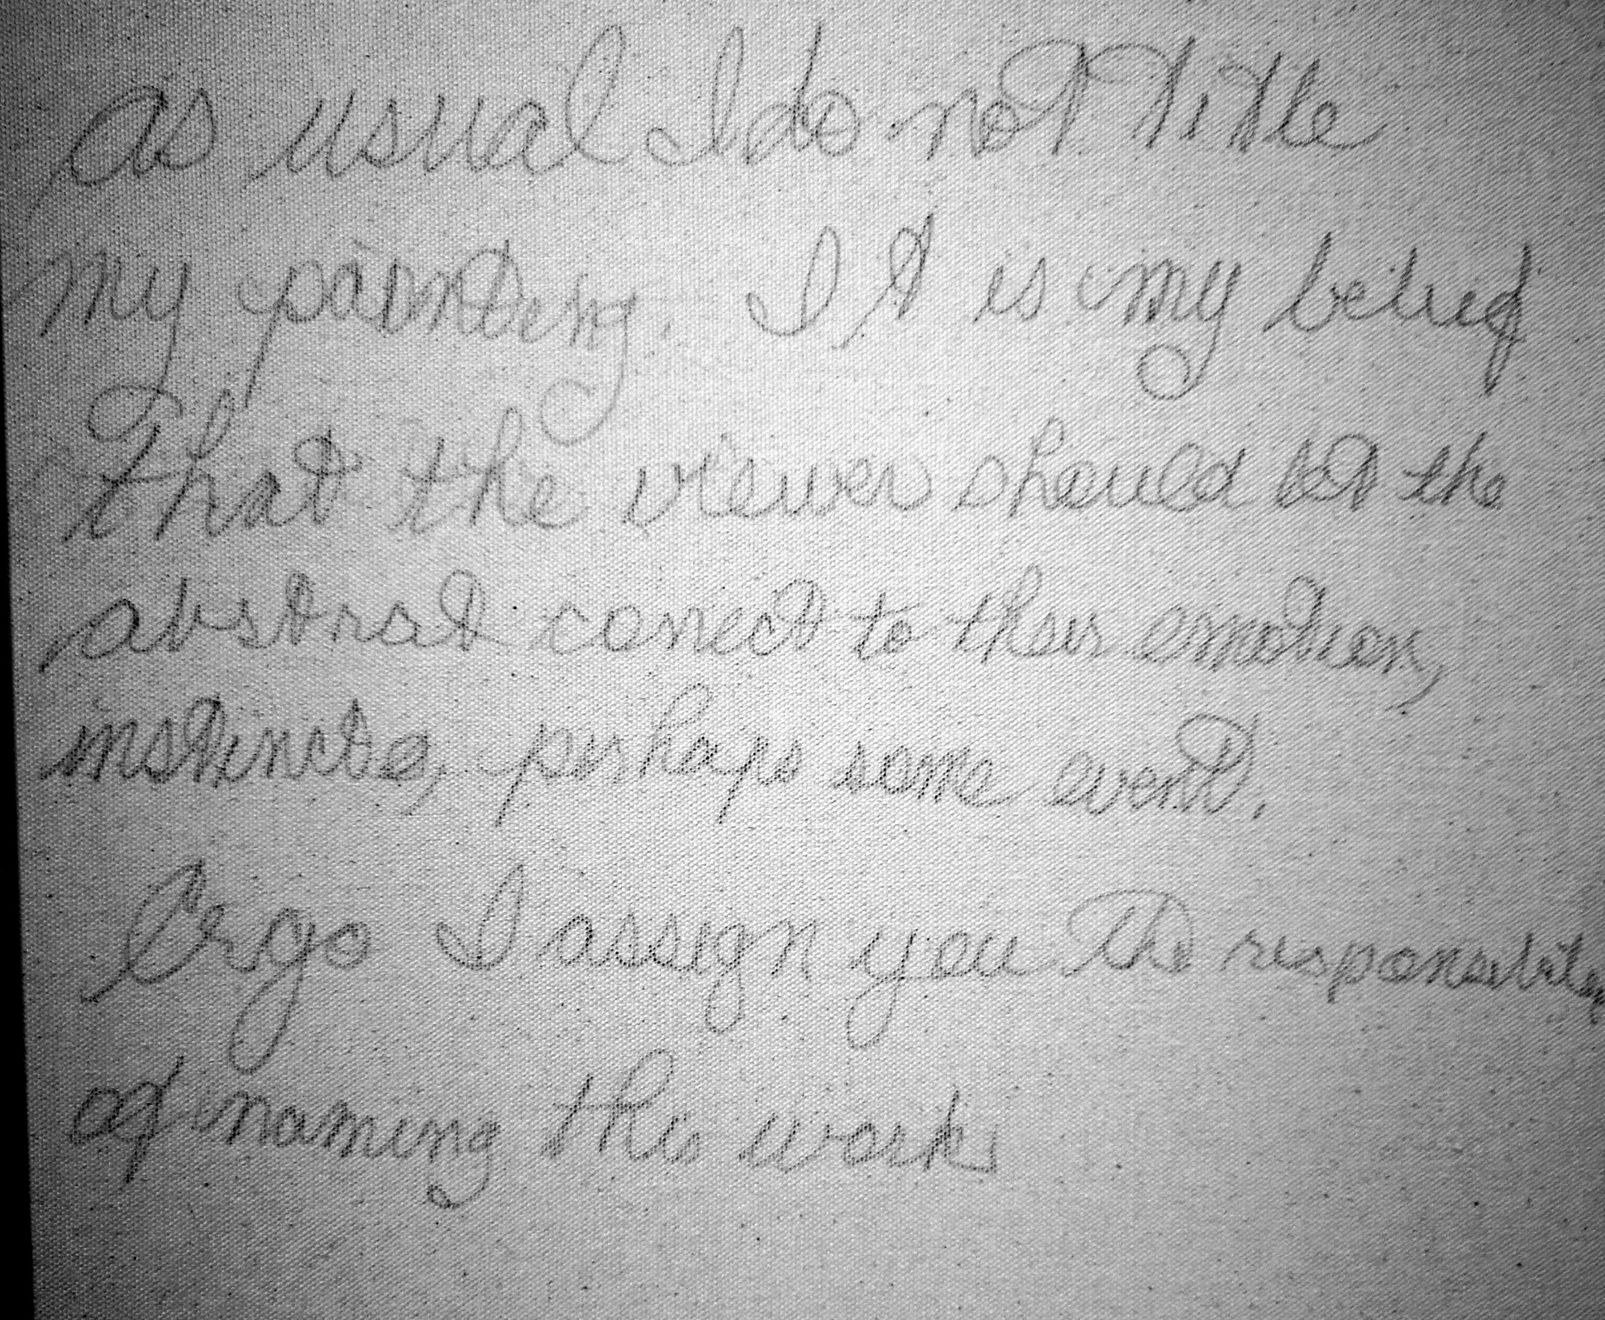 as usual I do not title
my painting. It is my belief
that the viewer should let the
abstrat conect to their emotion,
instincts, perhaps some event.
Ergo I assign you the responsibility
of naming this work